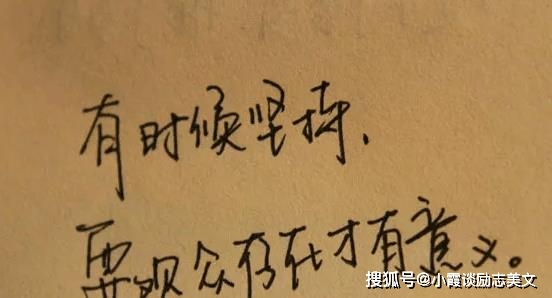 有时候坚持，
要观众存在才有意义。
搜狐号@小霞谈励志美文